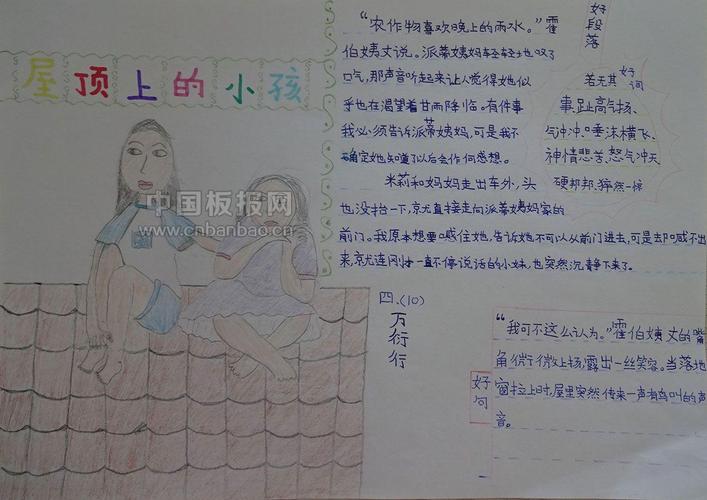 屋顶上的小孩
中国板报网
www.cnbanbao.cn
好段落
“农作物喜欢晚上的雨水。”霍
伯姨丈说。派蒂姨妈轻轻地叹了
口气,那声音听起来让人觉得她似
乎也在渴望着甘雨降临。有件事
我必须告诉派蒂姨妈,可是我不
确定她知道了以后会作何感想。
米莉和妈妈走出车外,头
也没抬一下,就直接走向派蒂姨妈家的
前门。我原本想要喊住她,告诉她不可以从前门进去,可是却喊不出
来,就连刚才一直不停说话的小妹,也突然沉静下来了。
好词
若无其
事、趾高气扬、
气冲冲、唾沫横飞、
神情悲苦、怒气冲天
硬邦邦、猝然一惊
四.(10)
万衍行
好句
“我可不这么认为。”霍伯姨丈的嘴
角微微上扬,露出一丝笑容。当落地
窗拉上时,屋里突然传来一声有鸟叫的声
音。